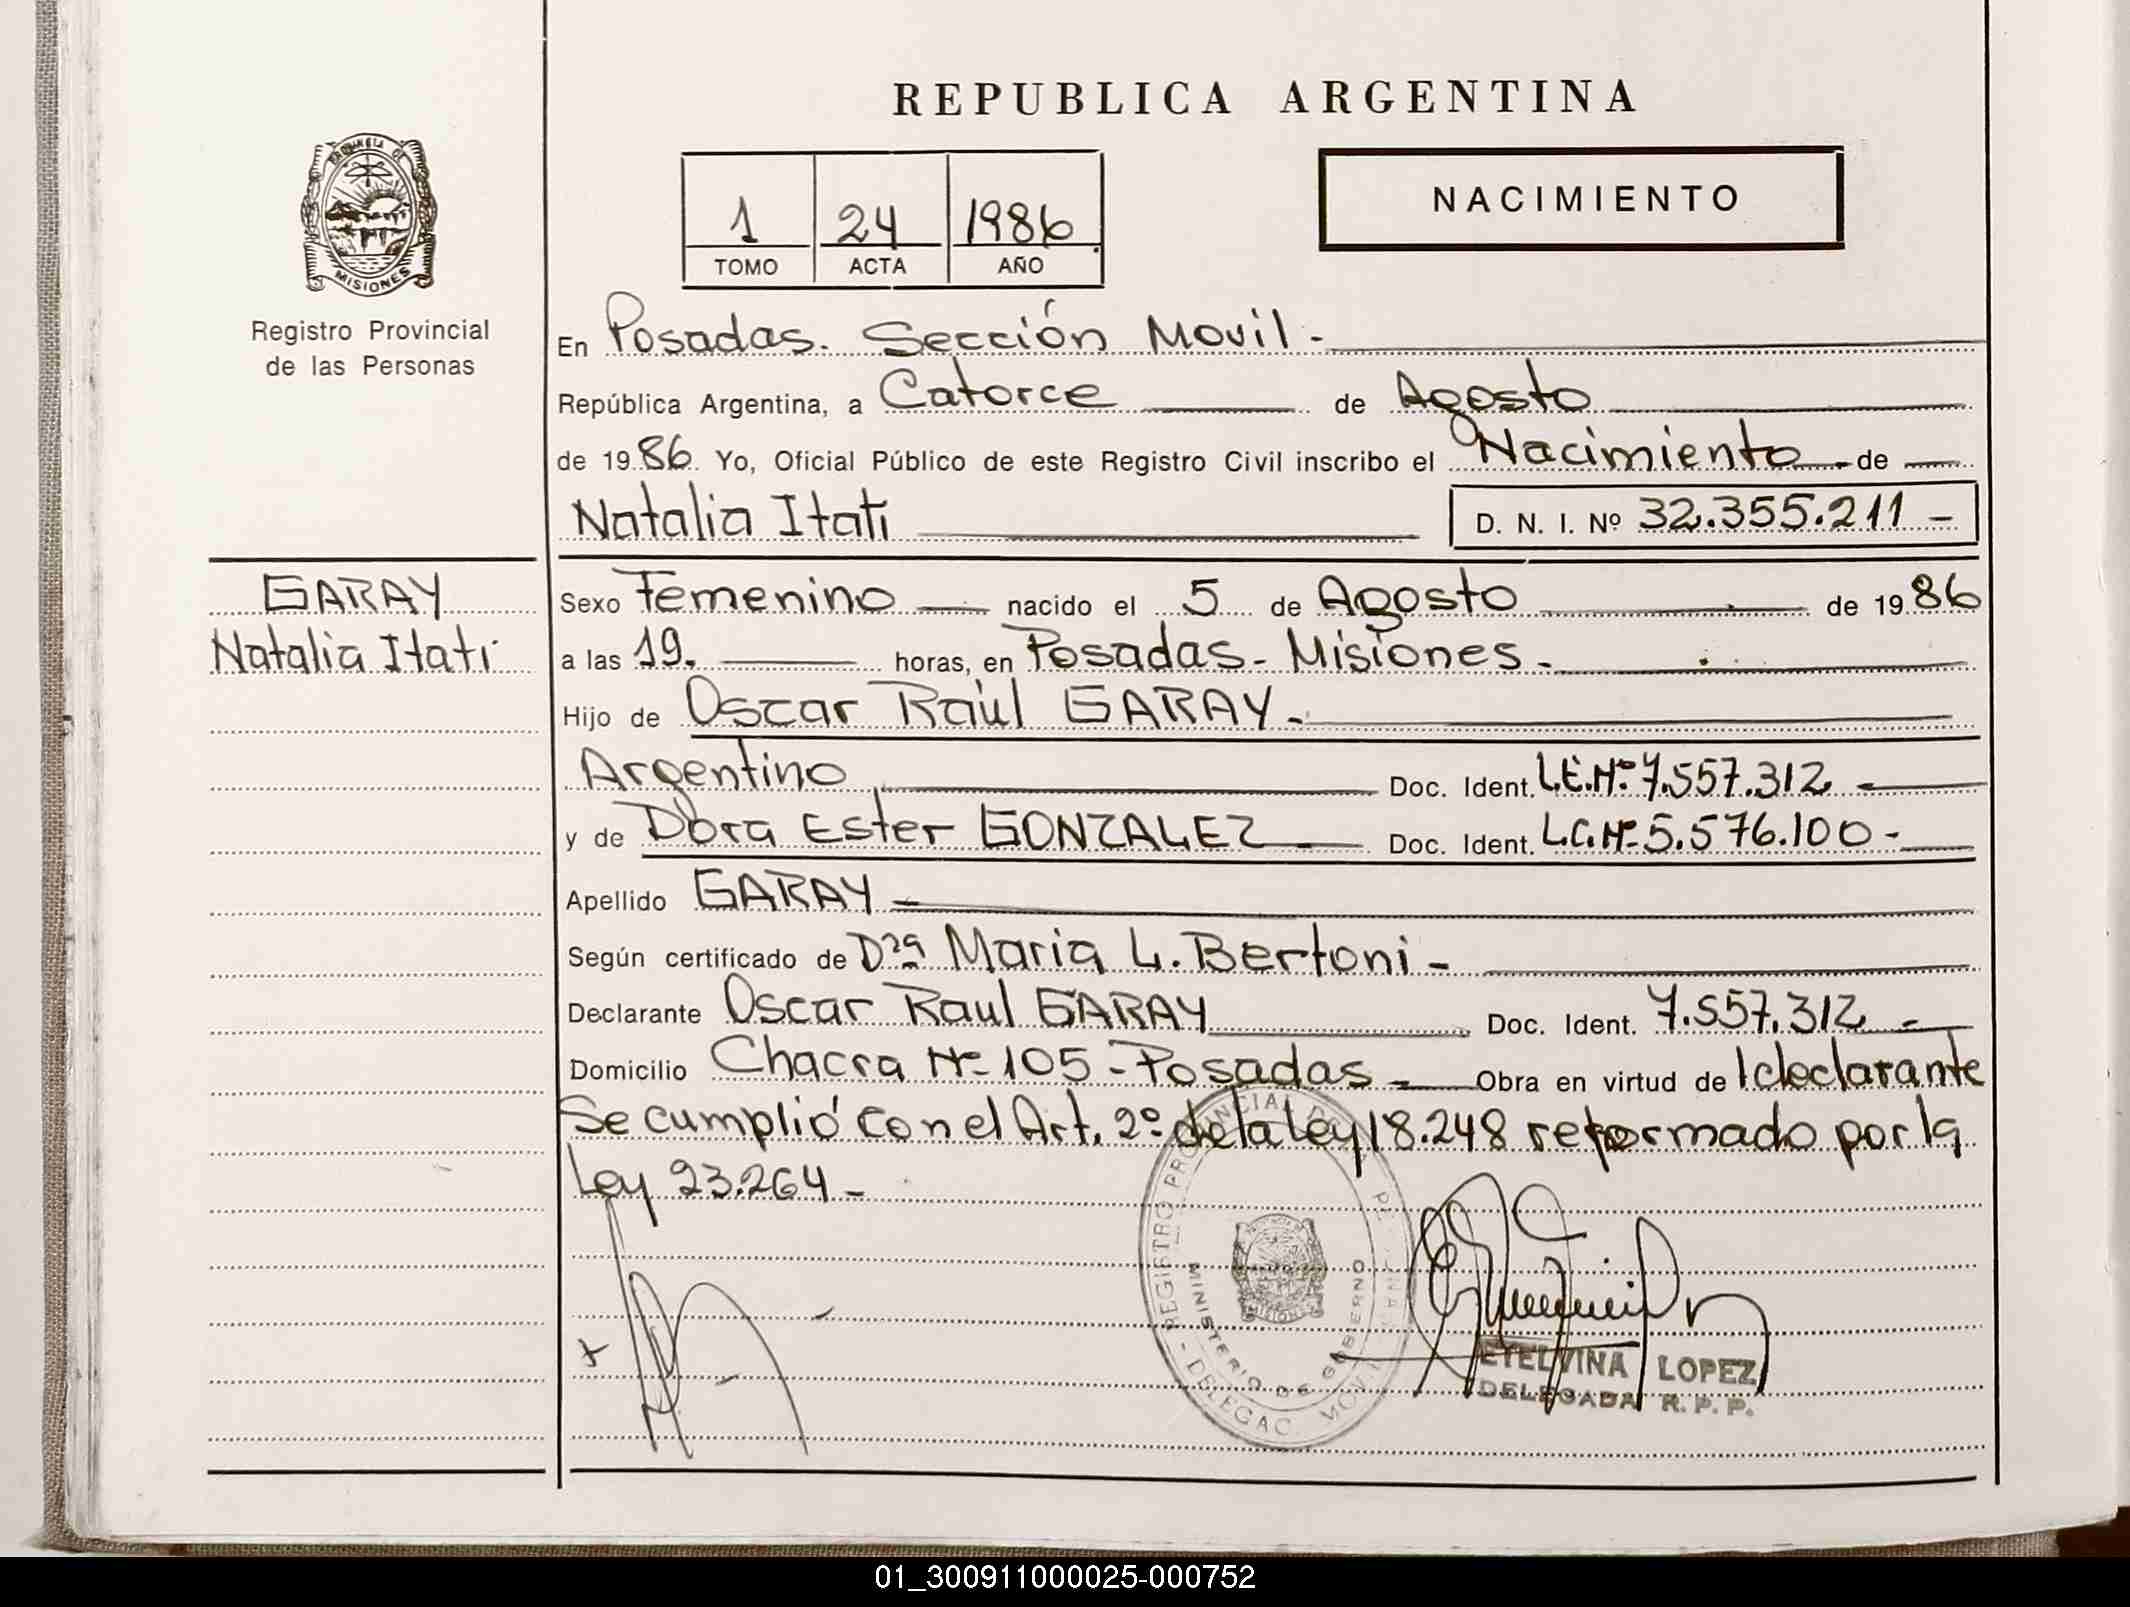 REPUBLICA ARGENTINA
PROVINCIA DE MISIONES
Registro Provincial
de las Personas
1 24 1986
TOMO ACTA AÑO
NACIMIENTO
En Posadas. Sección Movil.-
República Argentina, a Catorce de Agosto
de 1986 Yo, Oficial Público de este Registro Civil inscribo el Nacimiento de
Natalia Itatí D. N. I. Nº 32.355.211 -
GARAY
Natalia Itati
Sexo Femenino nacido el 5 de Agosto de 1986
a las 19. horas, en Posadas - Misiones.
Hijo de Oscar Raúl GARAY.
Argentino Doc. Ident. L.E.Nº 7.557.312 -
y de Dora Ester GONZALEZ Doc. Ident. L.C.Nº 5.576.100 -
Apellido GARAY -
Según certificado de Dra Maria L. Bertoni -
Declarante Oscar Raul GARAY Doc. Ident. 7.557.312 -
Domicilio Chacra Nº 105 - Posadas - Obra en virtud de l declarante
Se cumplió con el Art. 2º de la Ley 18.248 reformado por la
Ley 23.264 -
REGISTRO PROVINCIAL DE
MINISTERIO DE GOBIERNO
ETELVINA LOPEZ
DELEGADA R. P. P.
01_300911000025-000752